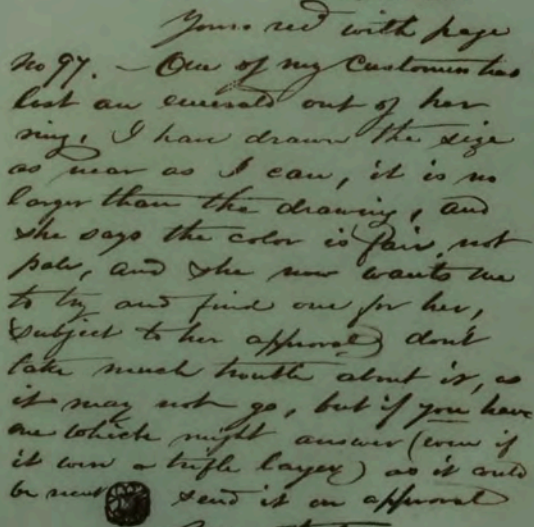 Yours recd with page
No 97. – One of my Customers has
lost an emerald out of her
ring, I have drawn the size
as near as I can, it is no
larger than the drawing, and
she says the color is fair, not
pale, and she now wants me
to try and find one for her,
(subject to her approval) don't
take much trouble about it, as
it may not go, but if you have
one which might answer (even if
it were a trifle larger) as it could
be send it on approval